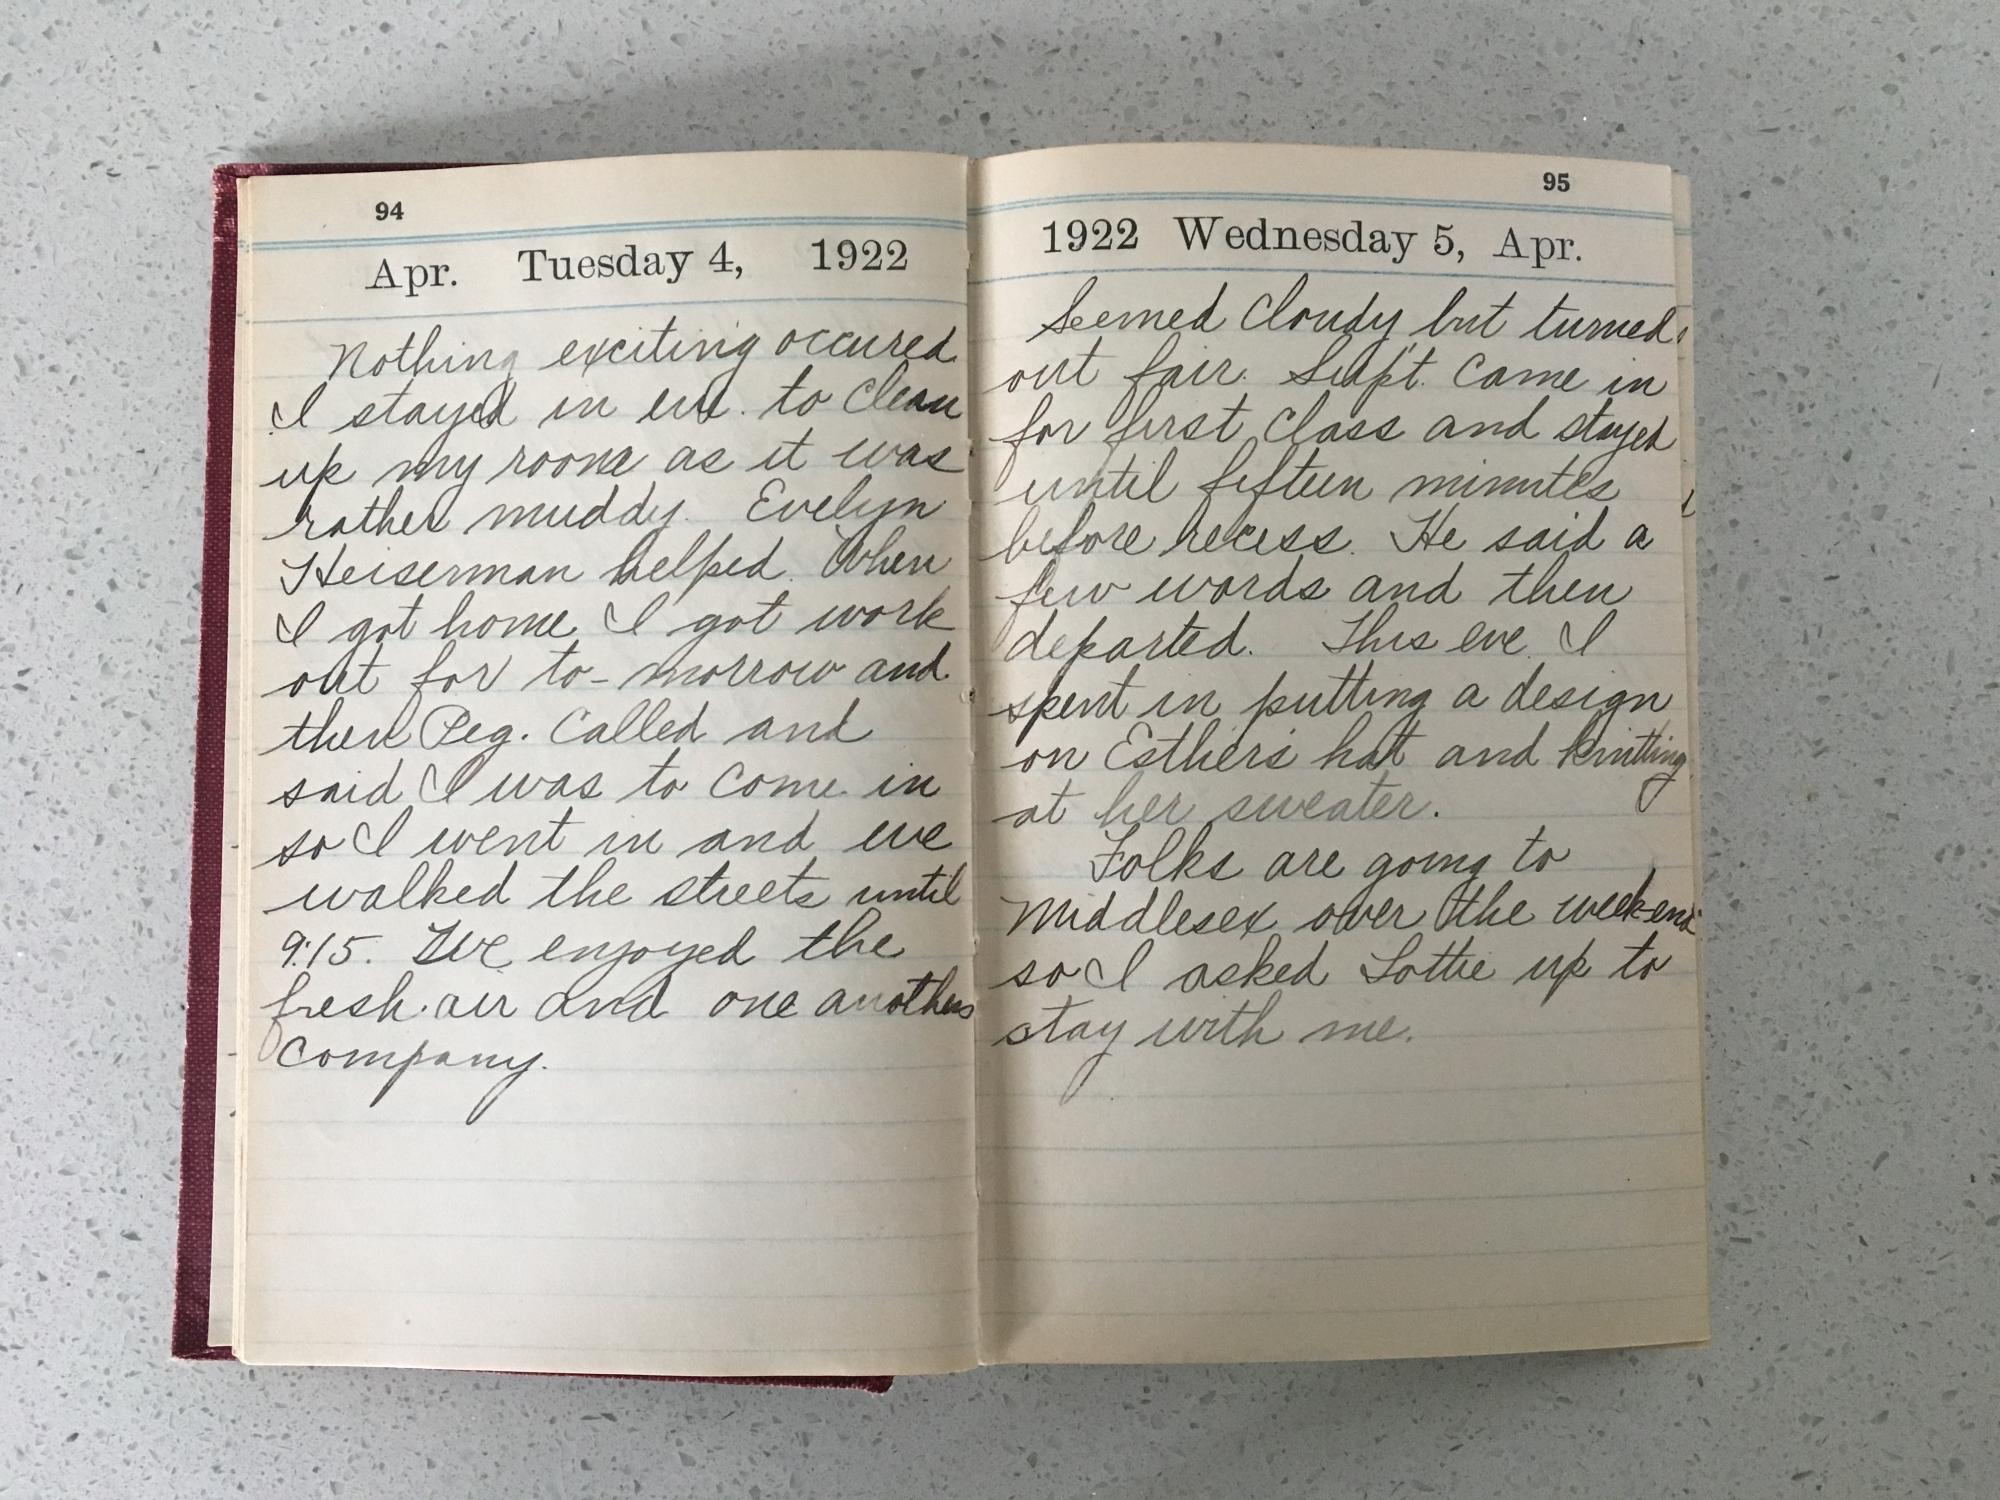 94
Apr. Tuesday 4, 1922
Nothing exciting occured
I stayed in eve. to clean
up my room as it was
rather muddy. Evelyn
Heiserman helped. When
I got home I got work
out for to-morrow and
then Peg. called and
said I was to come in
so I went in and we
walked the streets until
9:15. We enjoyed the
fresh air and one anothers
company.
95
1922 Wednesday 5, Apr.
Seemed cloudy but turned
out fair. Sup't. came in
for first class and stayed
until fifteen minutes
before recess. He said a
few words and then
departed. This eve. I
spent in putting a design
on Esther's hat and knitting
at her sweater.
Folks are going to
Middlesex over the week-end
so I asked Lottie up to
stay with me.